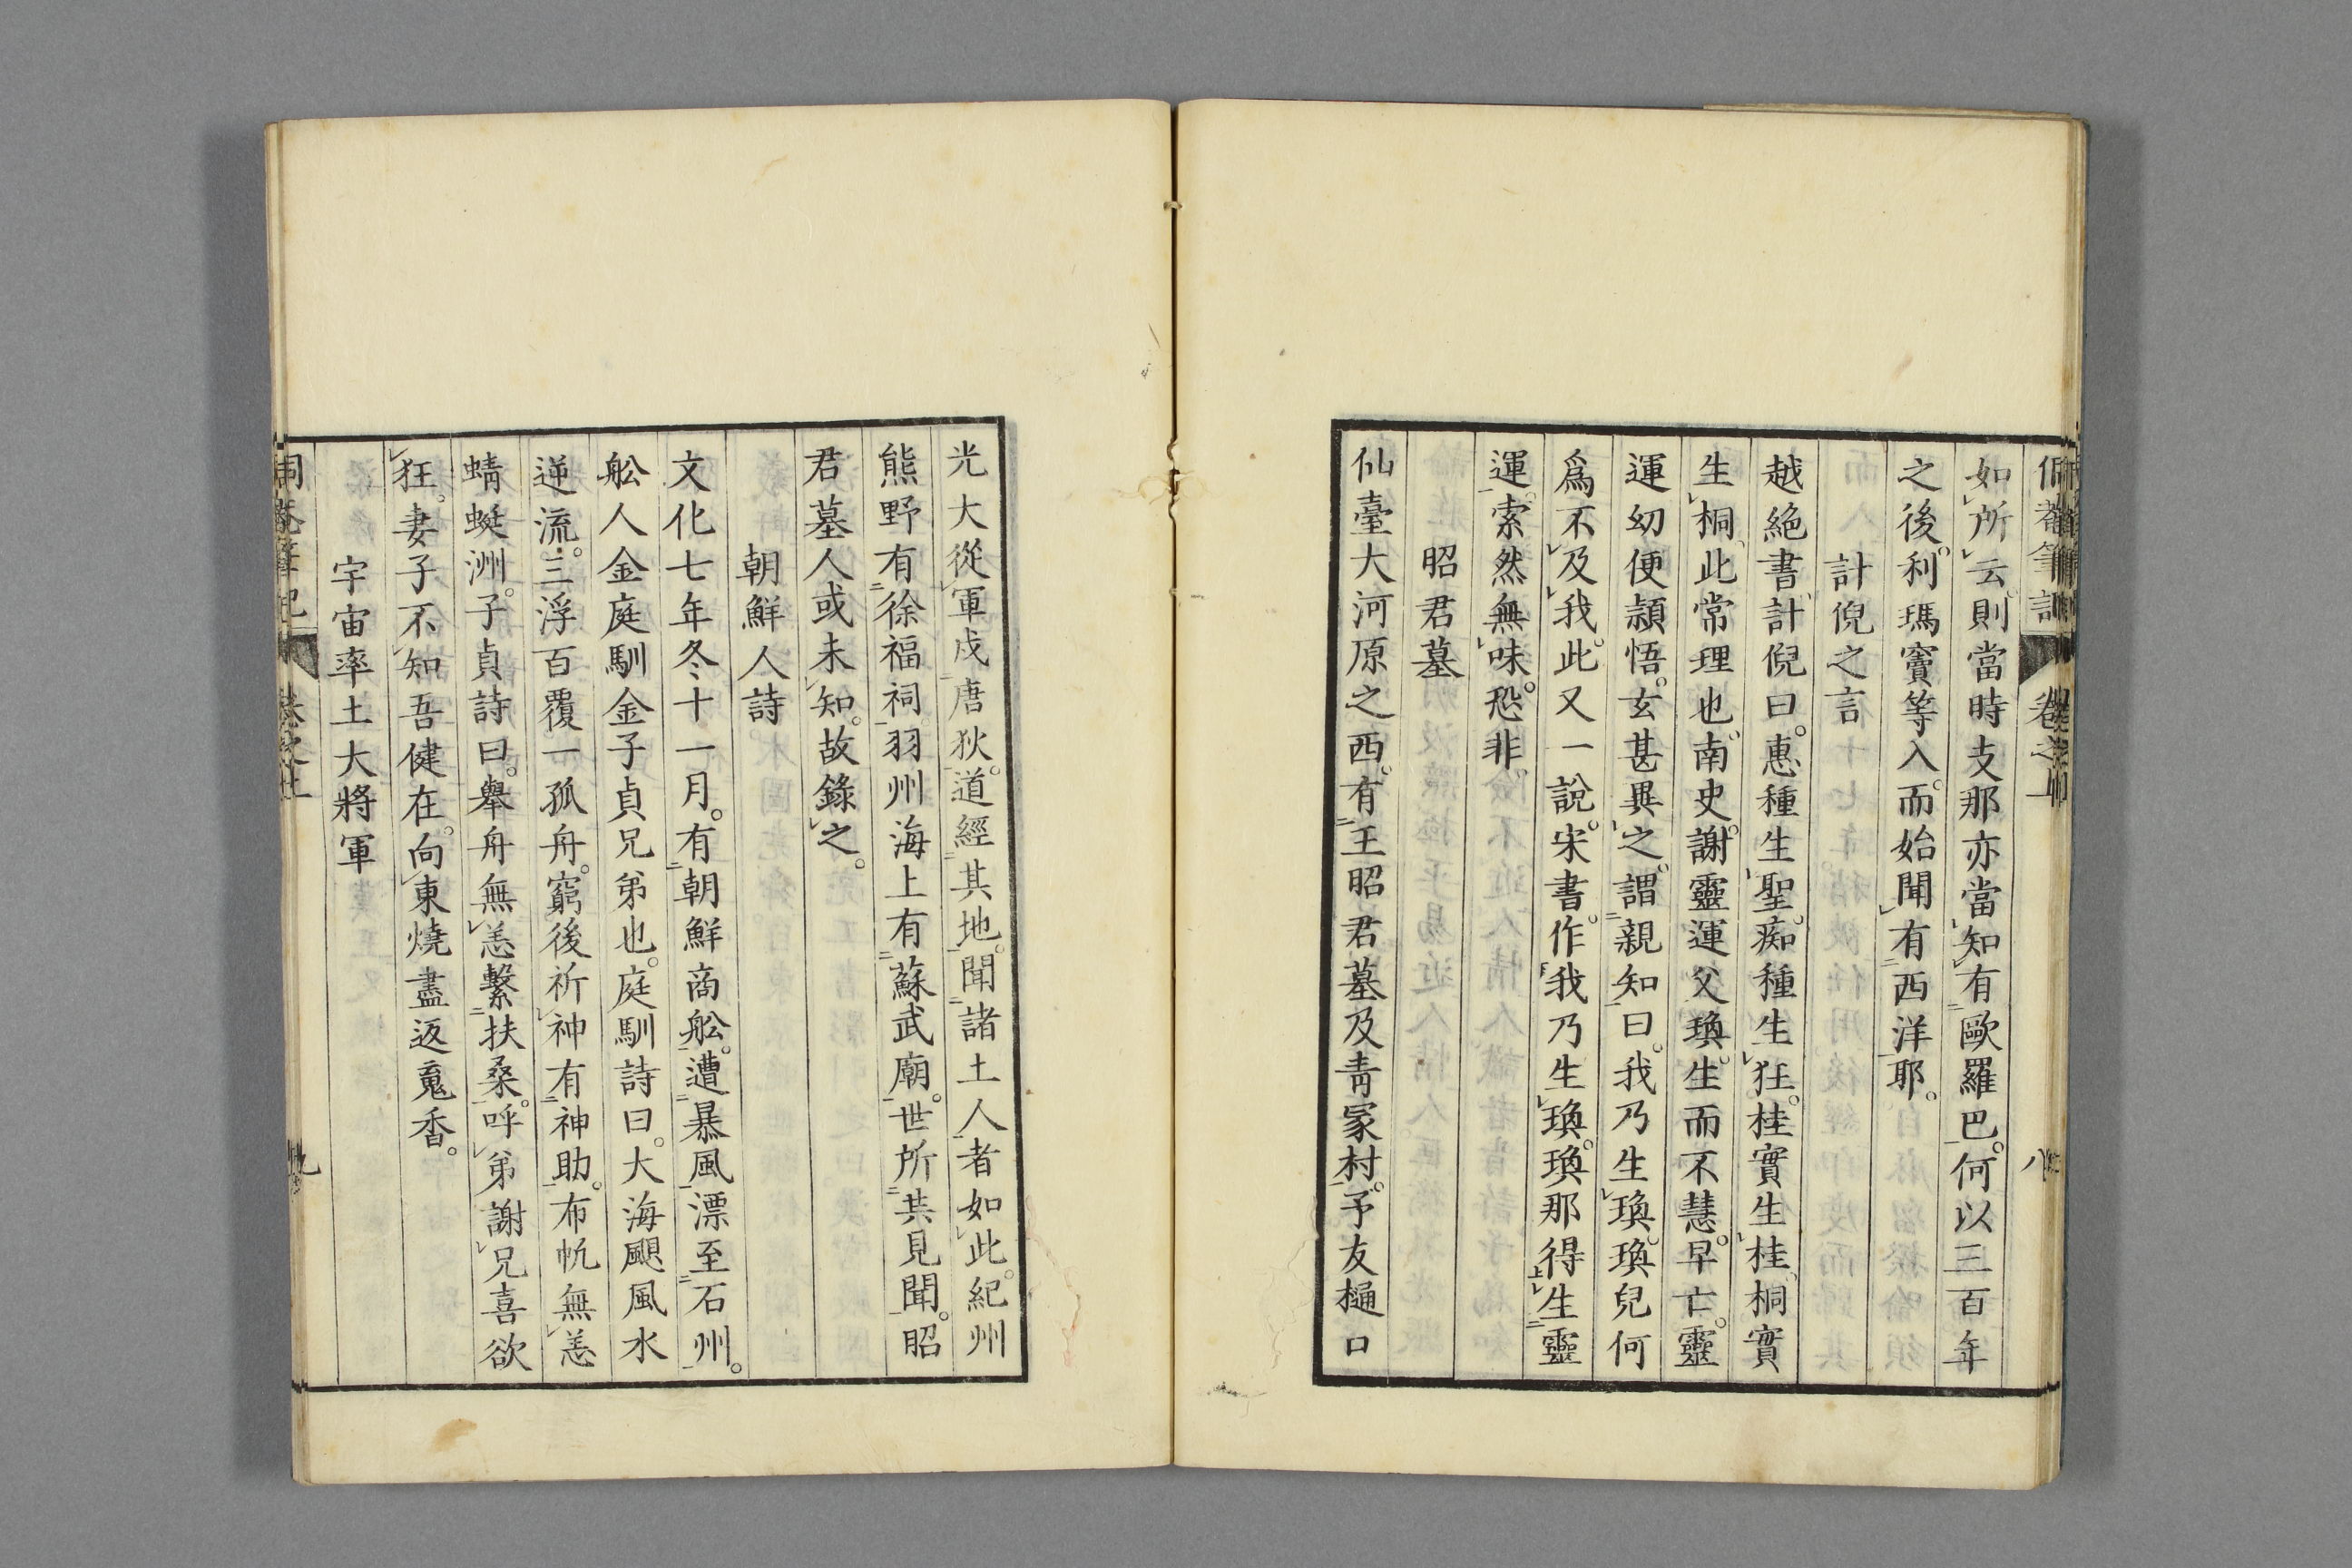 如所云則當時支那亦當知有歐羅巴。何以三百年
之後。利瑪竇等入。而始聞有西洋耶。
計倪之言
越絶書計倪曰。惠種生聖。痴種生狂。桂實生桂。桐實
生桐。此常理也。南史。謝靈運父瑍。生而不慧。早亡。靈
運幼便頴悟。玄甚異之。謂親知曰。我乃生瑍。瑍兒何
爲不及我。此又一說。宋書。作我乃生瑍。瑍那得生靈
運。索然無味。恐非。
昭君墓
仙臺大河原之西。有王昭君墓及青冢村。予友樋口
光大從軍戍唐狄。道經其地。聞諸土人者如此。紀州
熊野有徐福祠。羽州海上有蘇武廟。世所共見聞。昭
君墓人或未知。故錄之。
朝鮮人詩
文化七年冬十一月。有朝鮮商舩。遭暴風漂至石州。
舩人金庭馴金子貞兄弟也。庭馴詩曰。大海颶風水
逆流。三浮百覆一孤舟。窮後祈神有神助。布帆無恙
蜻蜓洲。子貞詩曰。舉舟無恙繫扶桑。呼弟謝兄喜欲
狂。妻子不知吾健在。向東燒盡返魂香。
宇宙率土大將軍